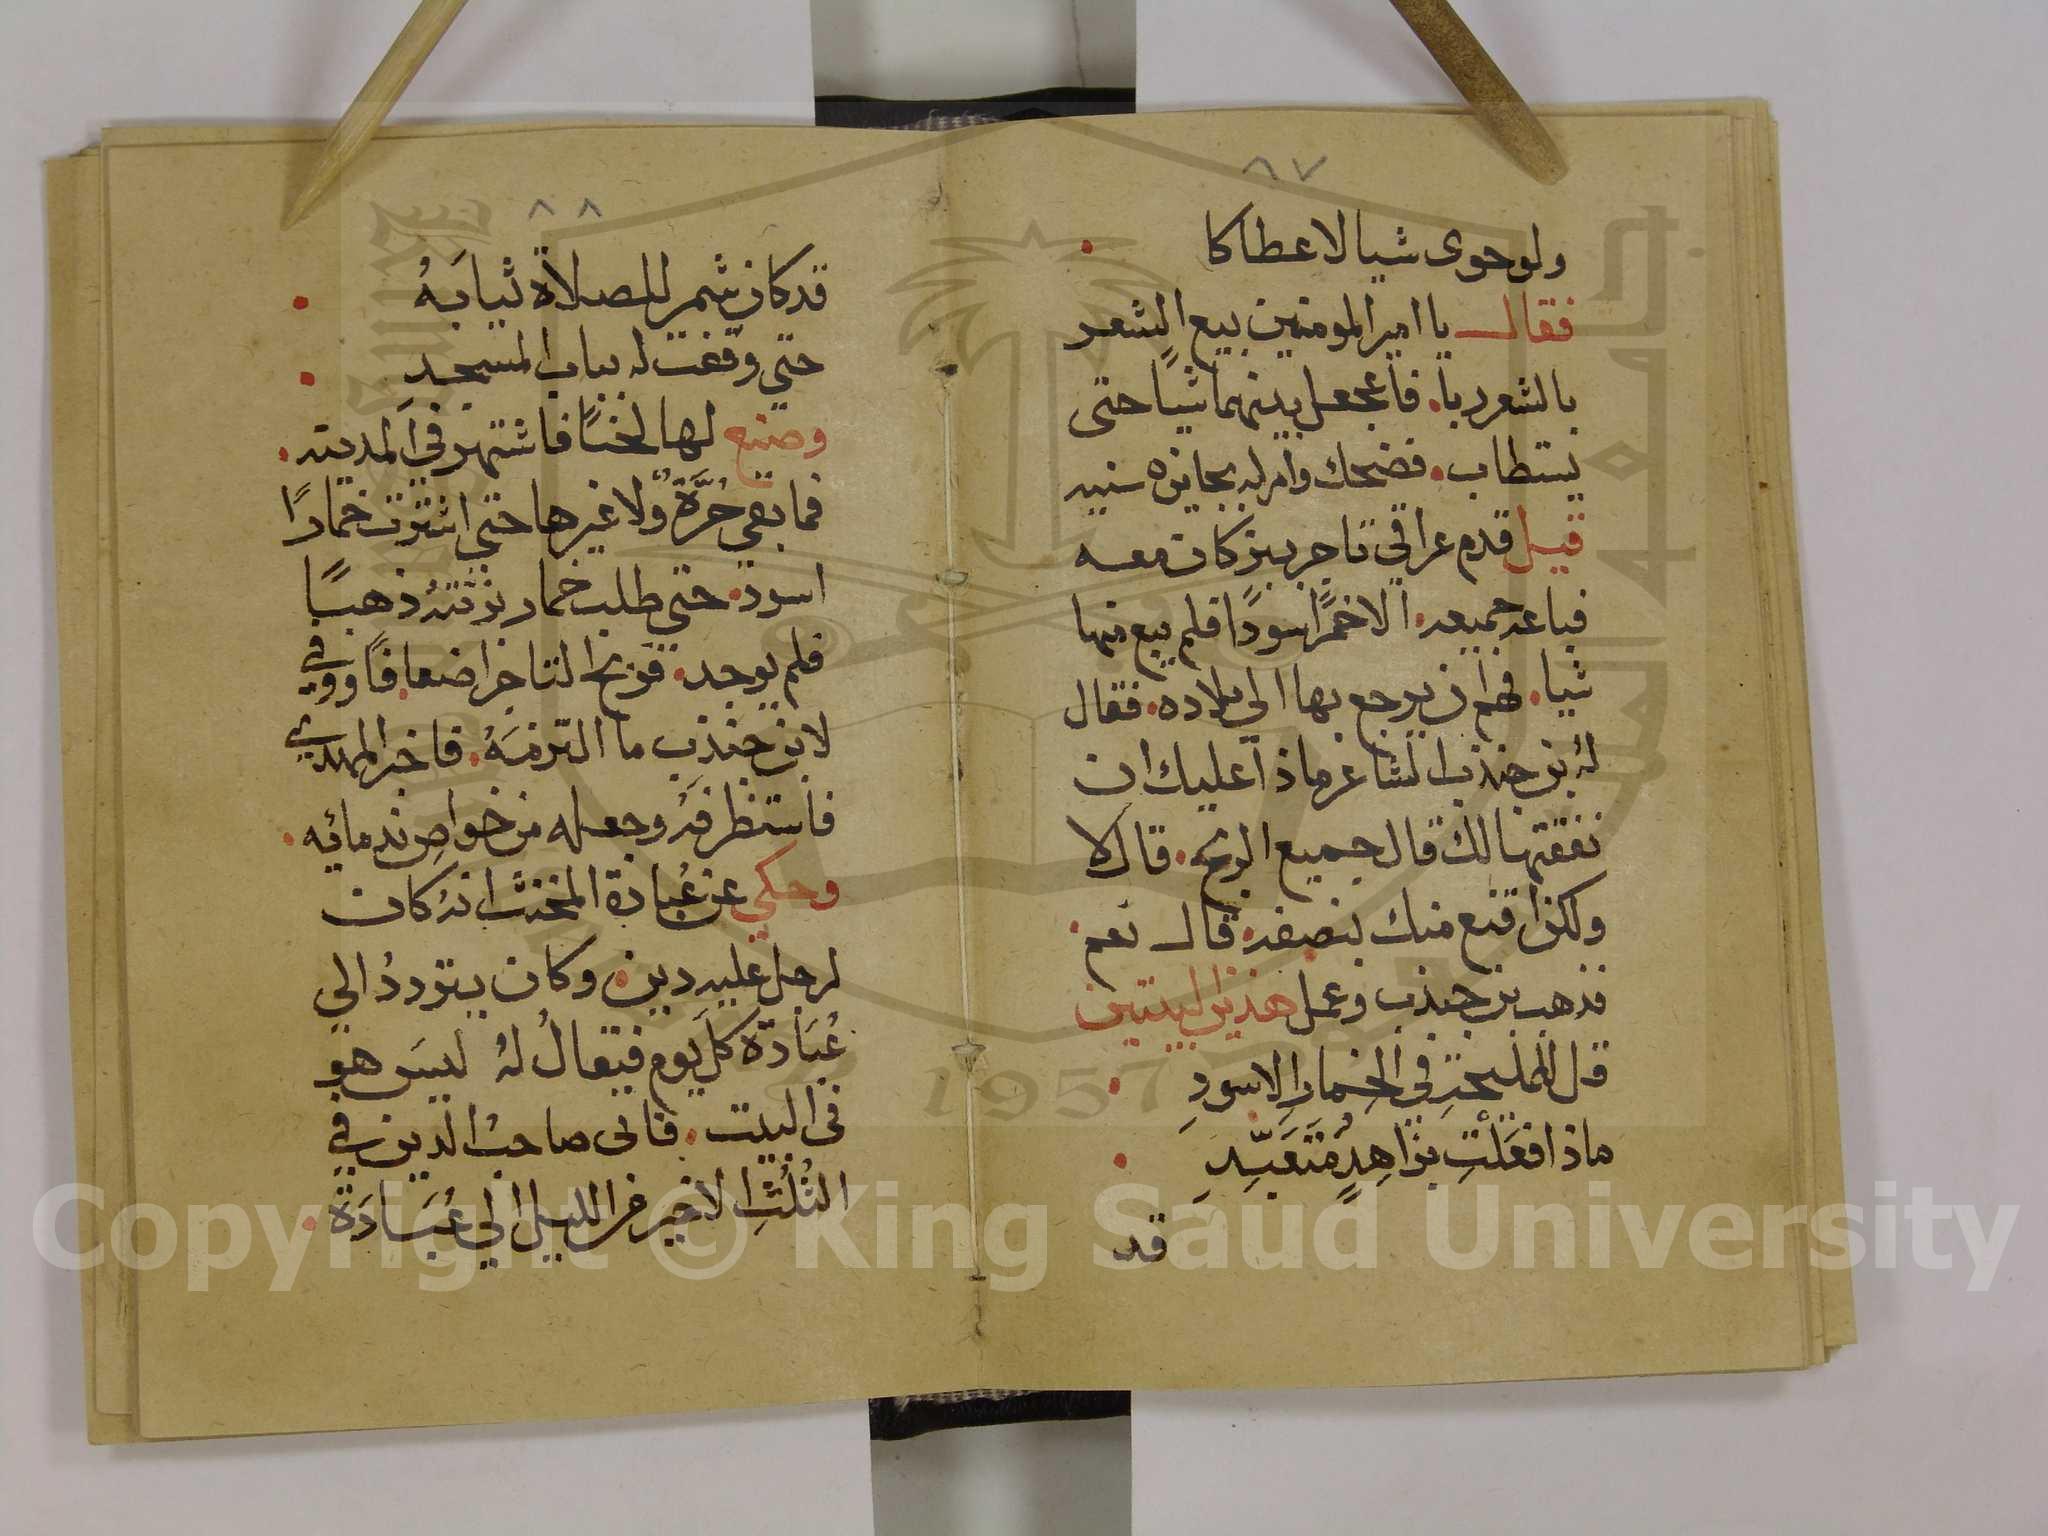 ٨٧
ولو حوى شيا لاعطاكا
فقال يا امير المومنين بيع الشعر
بالشعر ربا. فاجعل بينهما شيًا حتى
يستطاب. فضحك وامر له بجايزه سنيه
قيل قدم عراقي تاجر ببز كان معه
فباعه جميعه. الا خمرًا سودًا فلم يبع منها
شيا. فهم ان يرجع بها الى بلاده. فقال
له بن جندب الشاعر ماذا عليك ان
نفقتها لك قال جميع الربح. قال لا
ولكن اقنع منك بنصفه. قال نعم.
فذهب بن جندب وعمل هذين البيتين
قل للمليحتِ في الخمارِ الاسودِ
ماذا فعَلْتِ بزاهدٍ مُتَعَبِّدِ
قد
٨٨
قد كان شمر للصلاة ثيابَهُ
حتى وقفت له بباب المسجدِ
وصنع لها لحنًا فاشتهر في المدينه.
فما بقي حُرَّةٌ ولا غيرها حتى اشترت خمارًا
اسود. حتى طلب خمار بزنته ذهبًا
فلم يوجد. فربح التاجر اضعافًا ووفي
لابن جندب ما التزمَهُ. فاخبر المهدي
فاستظرفه وجعله من خواص ندمائه.
وحكي عن عُبادة المخنث انه كان
لرجل عليه دين. وكان يتوددُ الي
عُبَادَة كل يوم فيقالُ لهُ ليسَ هو
في البيت. فاتى صاحب الدين في
الثُلُثِ الاخير من الليل الي عُبَادَة.
Copyright © King Saud University
1957